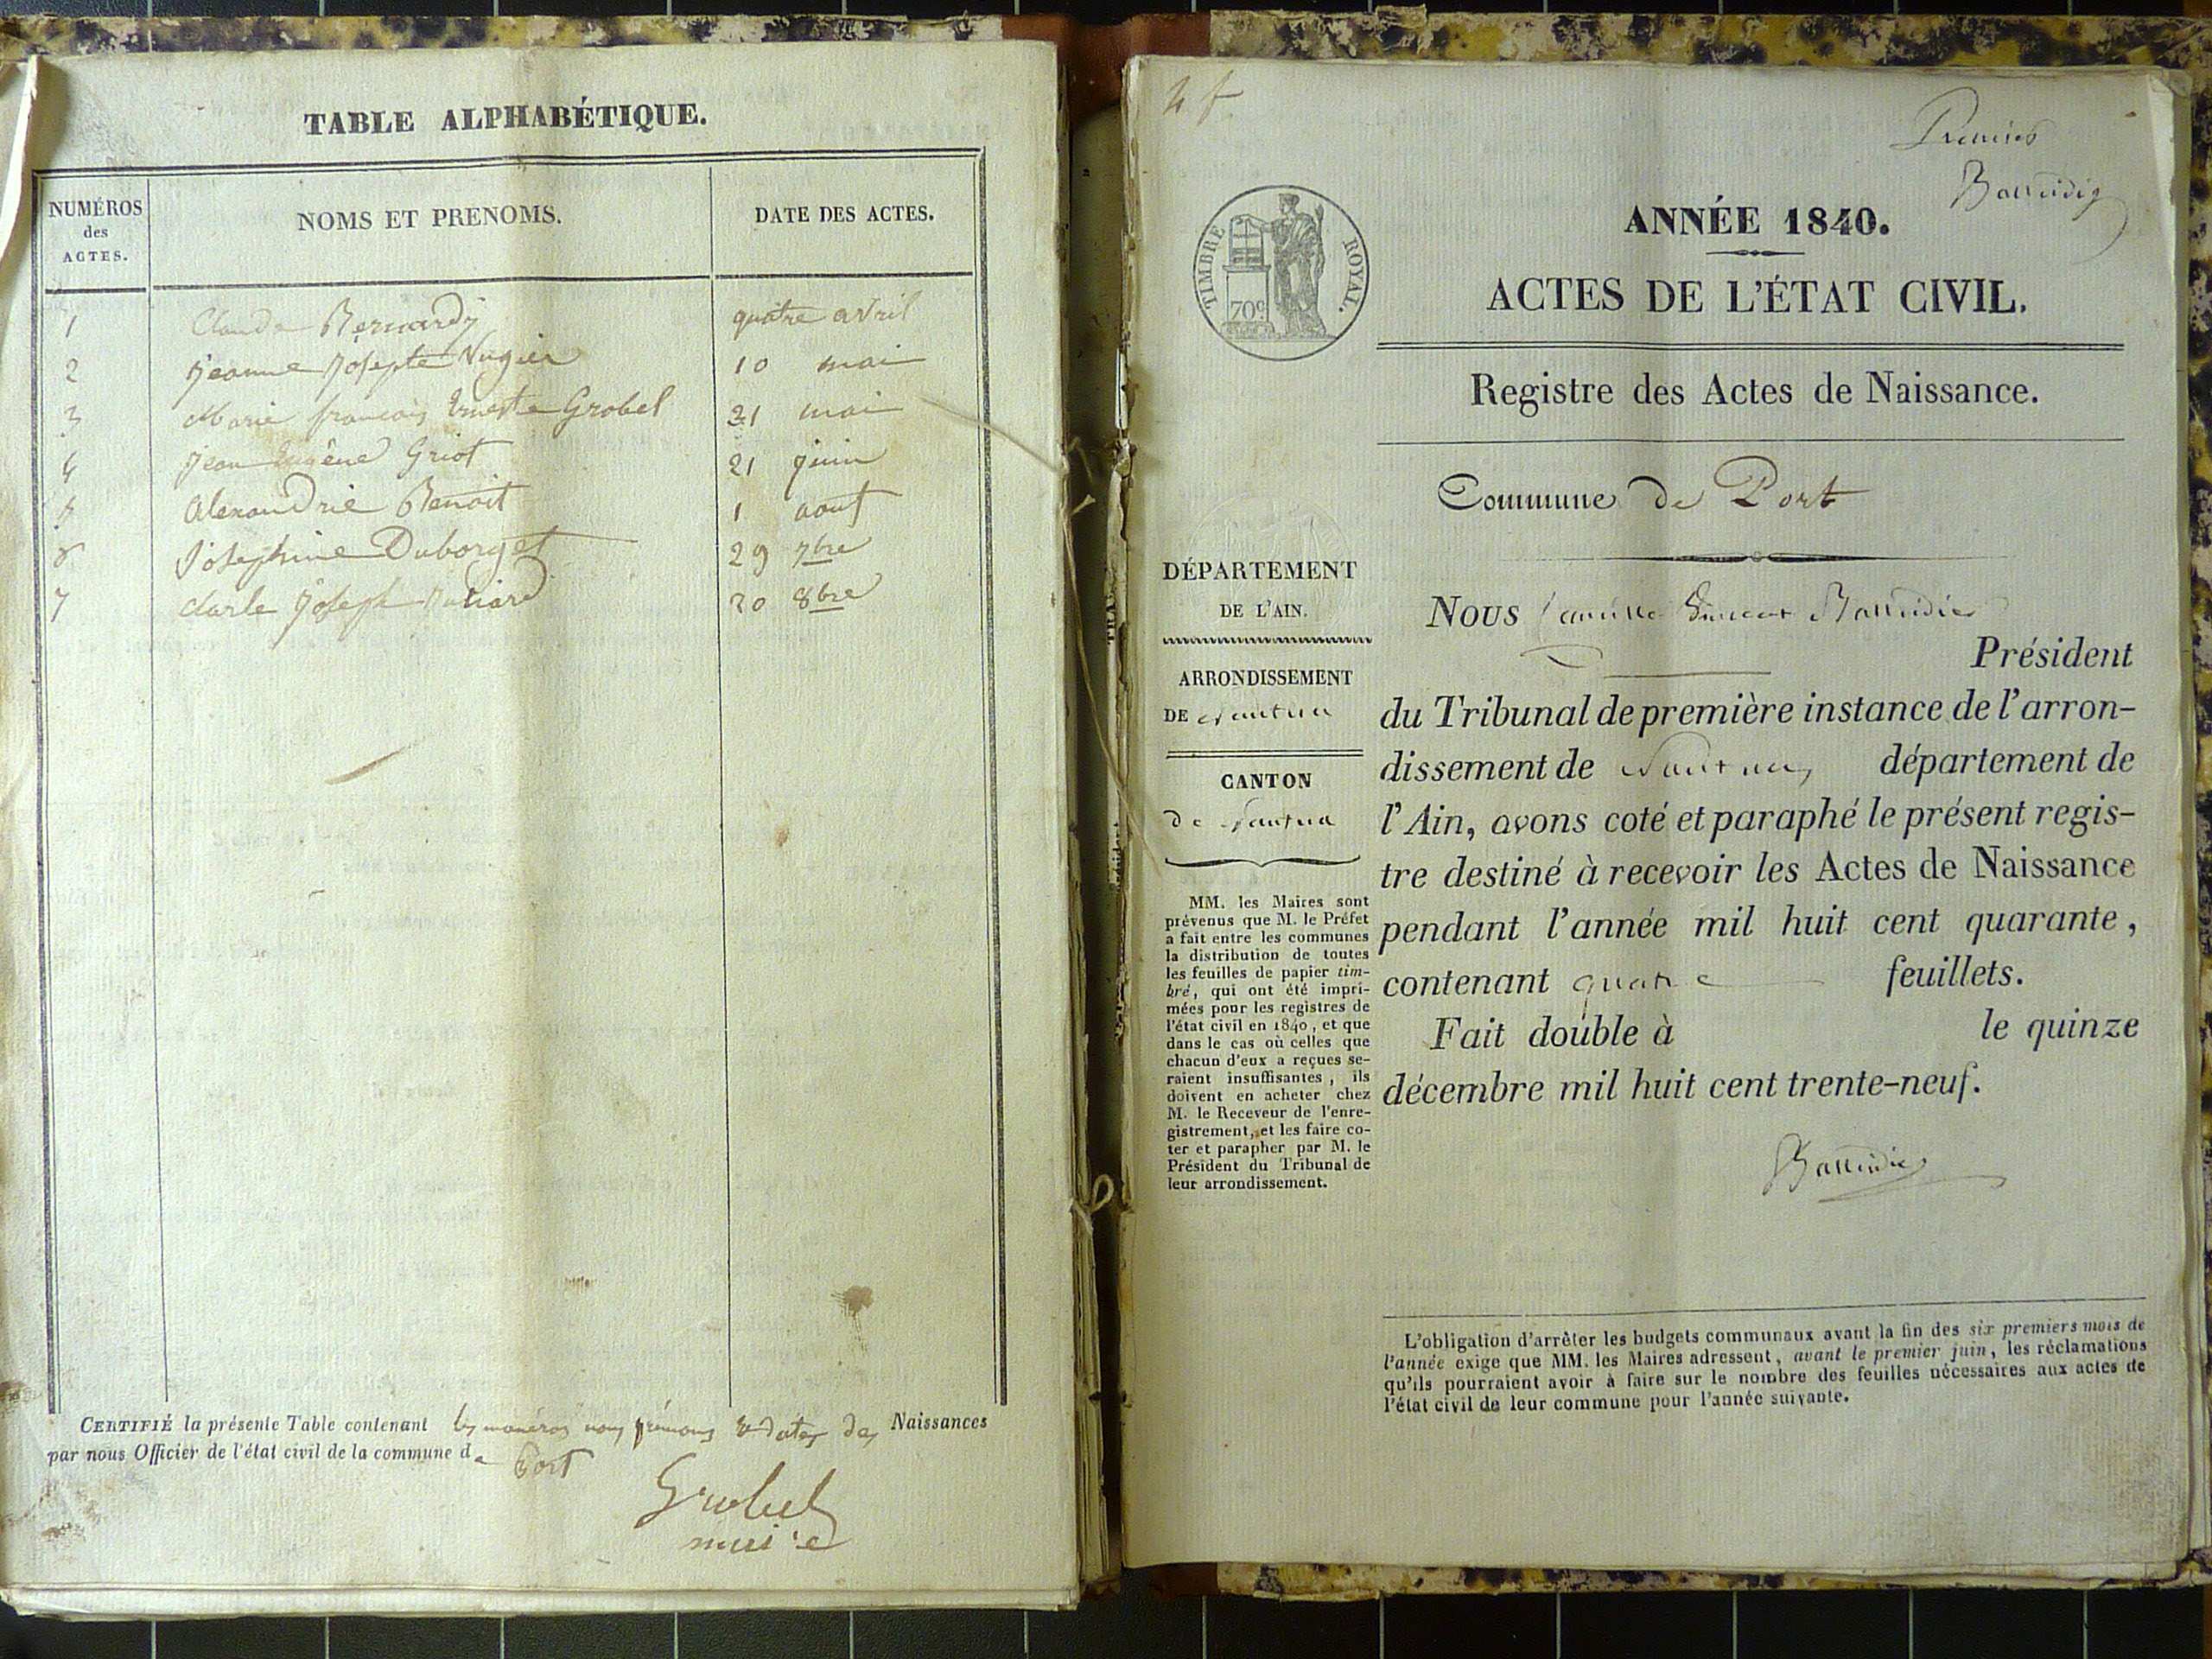 TABLE ALPHABÉTIQUE.
NUMÉROS
des
ACTES.
NOMS ET PRENOMS.
DATE DES ACTES.
1 Claude Bernardy quatre avril
2 jeanne josepte Vugier 10 mai
3 Marie françois Erneste Grobel 21 mai
4 jean Eugêne Griot 21 juin
5 Alexandrie Benoit 1 aout
6 Josephine Duborget 29 7bre
7 Charle joseph 20 8bre
CERTIFIÉ la présente Table contenant les numéros noms prénoms & dates des Naissances
par nous Officier de l'état civil de la commune de Port
Grobel
maire
4 f
Premier
TIMBRE ROYAL.
70c
ANNÉE 1840.
ACTES DE L'ÉTAT CIVIL.
Registre des Actes de Naissance.
Commune de Port
DÉPARTEMENT
DE L'AIN.
ARRONDISSEMENT
DE Nantua
CANTON
de Nantua
MM. les Maires sont
prévenus que M. le Préfet
a fait entre les communes
la distribution de toutes
les feuilles de papier tim-
bré, qui ont été impri-
mées pour les registres de
l'état civil en 1840, et que
dans le cas où celles que
chacun d'eux a reçues se-
raient insuffisantes, ils
doivent en acheter chez
M. le Receveur de l'enre-
gistrement, et les faire co-
ter et parapher par M. le
Président du Tribunal de
leur arrondissement.
Nous Camille Vincent
Président
du Tribunal de première instance de l'arron-
dissement de Nantua, département de
l'Ain, avons coté et paraphé le présent regis-
tre destiné à recevoir les Actes de Naissance
pendant l'année mil huit cent quarante,
contenant quatre feuillets.
Fait double à le quinze
décembre mil huit cent trente-neuf.
L'obligation d'arrêter les budgets communaux avant la fin des six premiers mois de
l'année exige que MM. les Maires adressent, avant le premier juin, les réclamations
qu'ils pourraient avoir à faire sur le nombre des feuilles nécessaires aux actes de
l'état civil de leur commune pour l'année suivante.